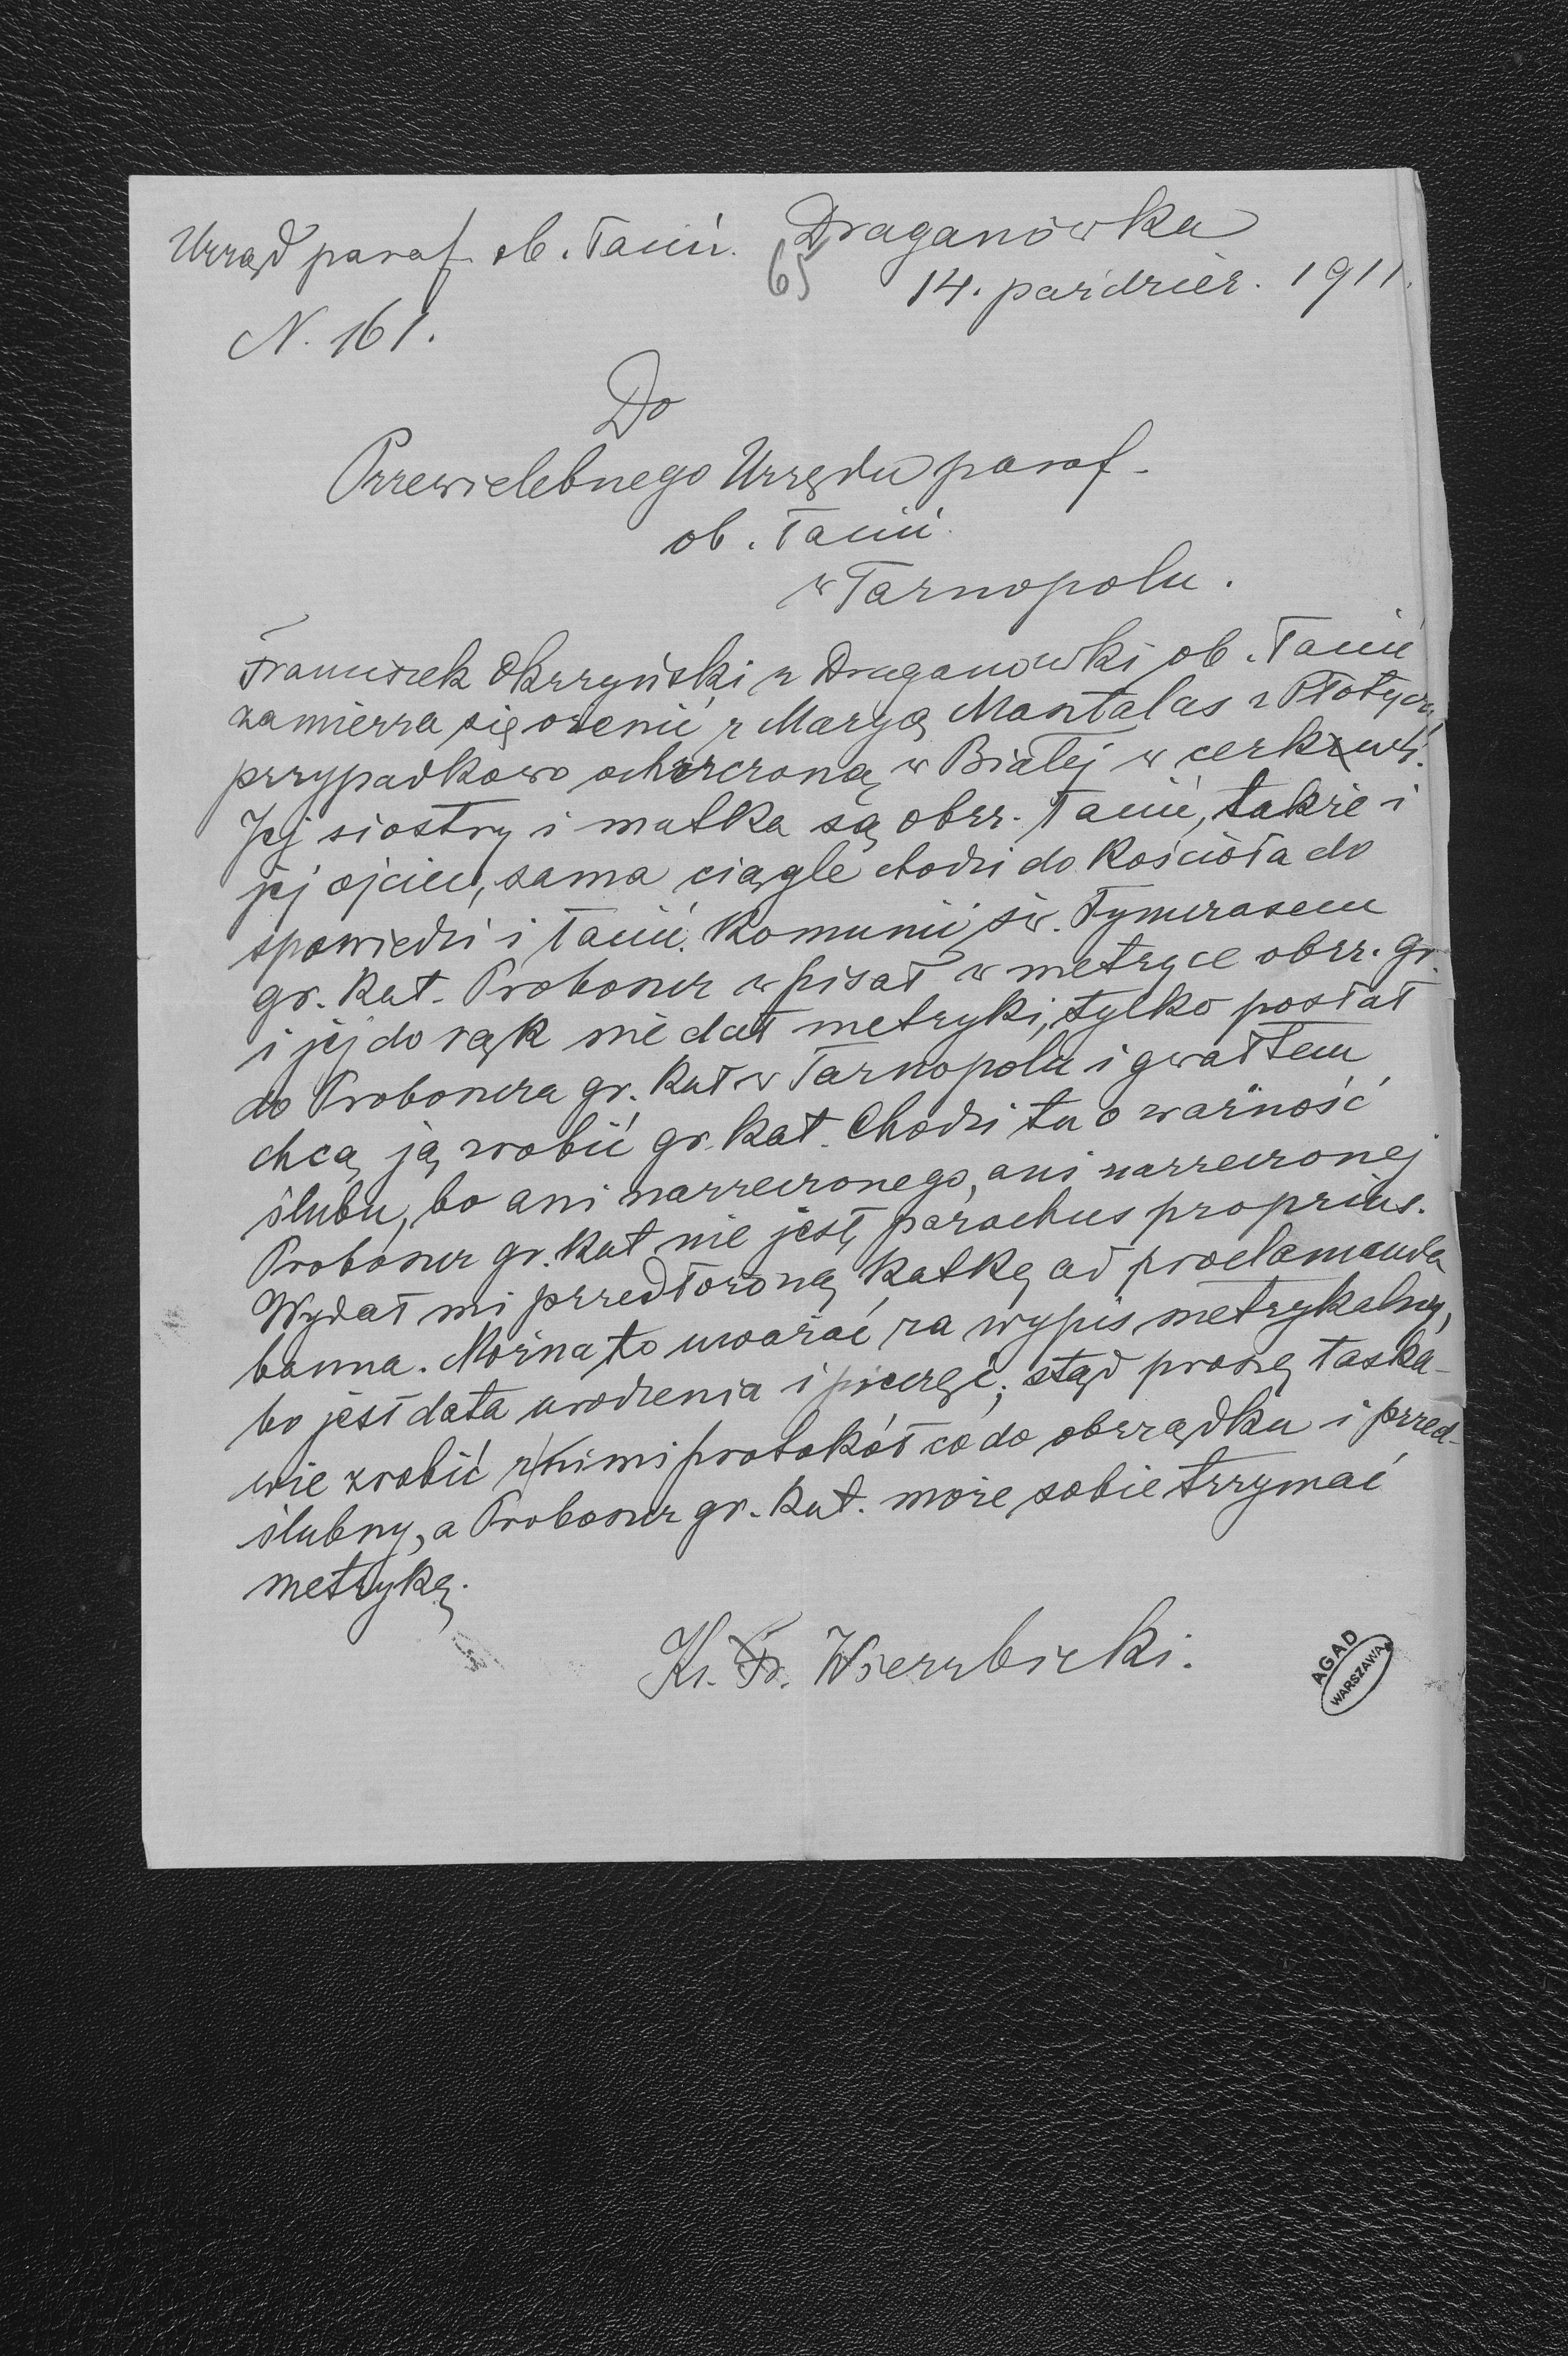 Urząd paraf. ob. łaciń. Draganówka
65 14. paździer. 1911.
N. 161.
Do
Przewielebnego Urzędu paraf.
ob. łaciń.
w Tarnopolu.
Franciszek Okrzyński z Draganowki ob. łaciń
zamierza się ożenić z Maryą Mantalas z Płotycz,
przypadkowo ochrzczoną w Białej w cerkwi.
Jej siostry i matka są obrz. łaciń, także i
jej ojciec, sama ciągle chodzi do kościoła do
spowiedzi i łaciń. Komunii św. Tymczasem
gr. kat. Proboszcz wpisał w metryce obrz. gr.
i jej do rąk nie dał metryki, tylko posłał
do Proboszcza gr. kat w Tarnopolu i gwałtem
chcą ją zrobić gr. kat. Chodzi tu o ważność
ślubu, bo ani narzeczonego, ani narzeczonej
Proboszcz gr. kat nie jest parochus proprius.
Wydał mi przedłożoną kartkę ad proclamanda
banna. Można to uważać za wypis metrykalny,
bo jest data urodzenia i pieczęć; stąd proszę łaska-
wie zrobić z nimi protokół co do obrządku i przed-
ślubny, a Proboszcz gr. kat. może sobie trzymać
metrykę.
Ks. Fr. Wierzbicki.
AGAD
WARSZAWA